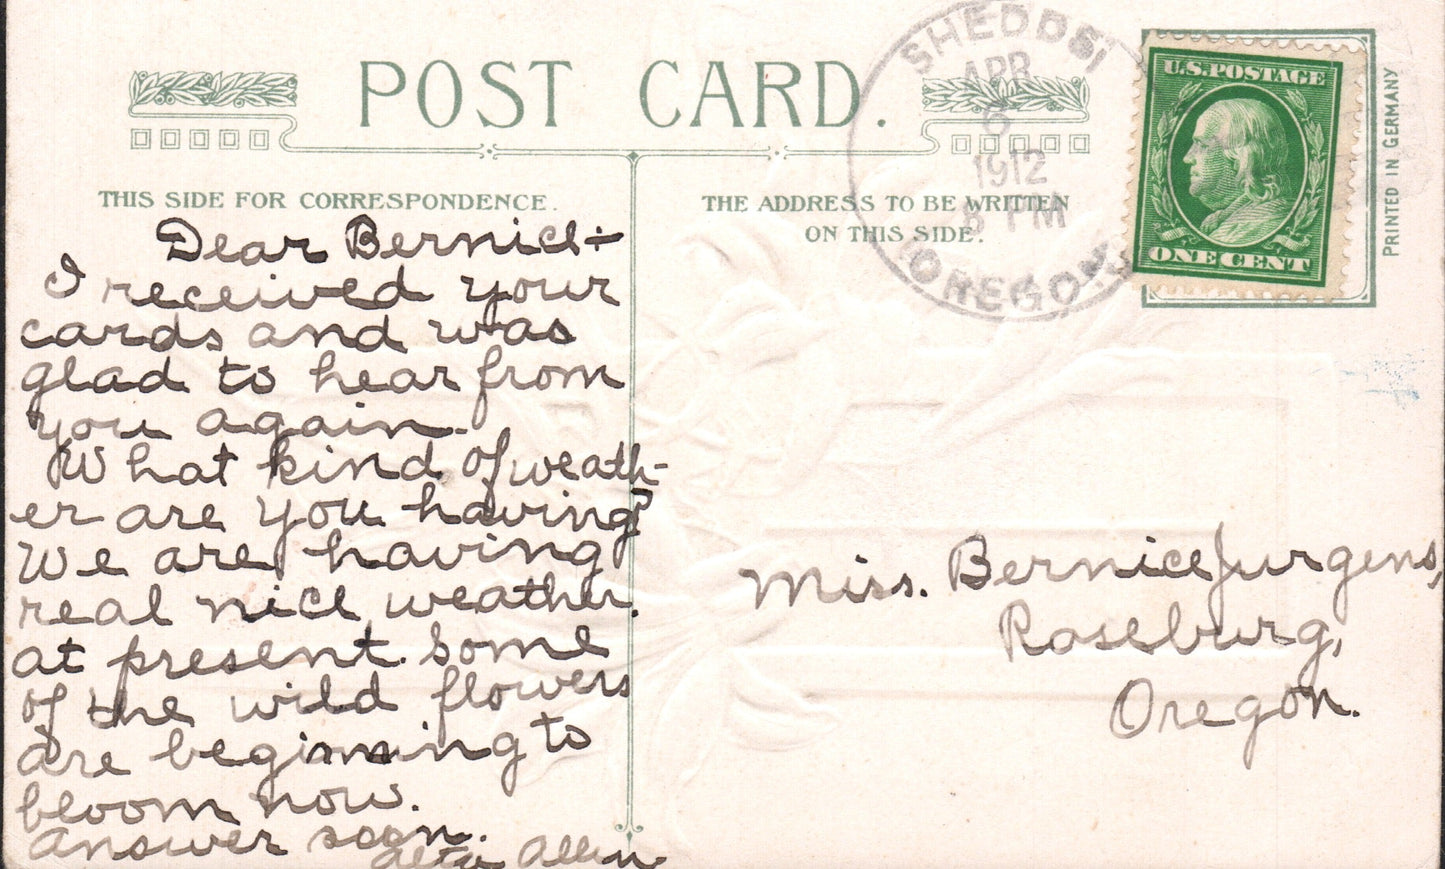 POST CARD.
SHEDDS,
APR
6
1912
8 PM
OREGON
U.S. POSTAGE
ONE CENT
PRINTED IN GERMANY
THIS SIDE FOR CORRESPONDENCE.
THE ADDRESS TO BE WRITTEN
ON THIS SIDE.
Dear Bernice:-
I received your
cards and was
glad to hear from
you again.
What kind of weath-
er are you having?
We are having
real nice weather
at present. Some
of the wild flowers
are beginning to
bloom now.
Answer soon.
Alta Allen
Miss. Bernice Jurgens,
Roseburg,
Oregon.